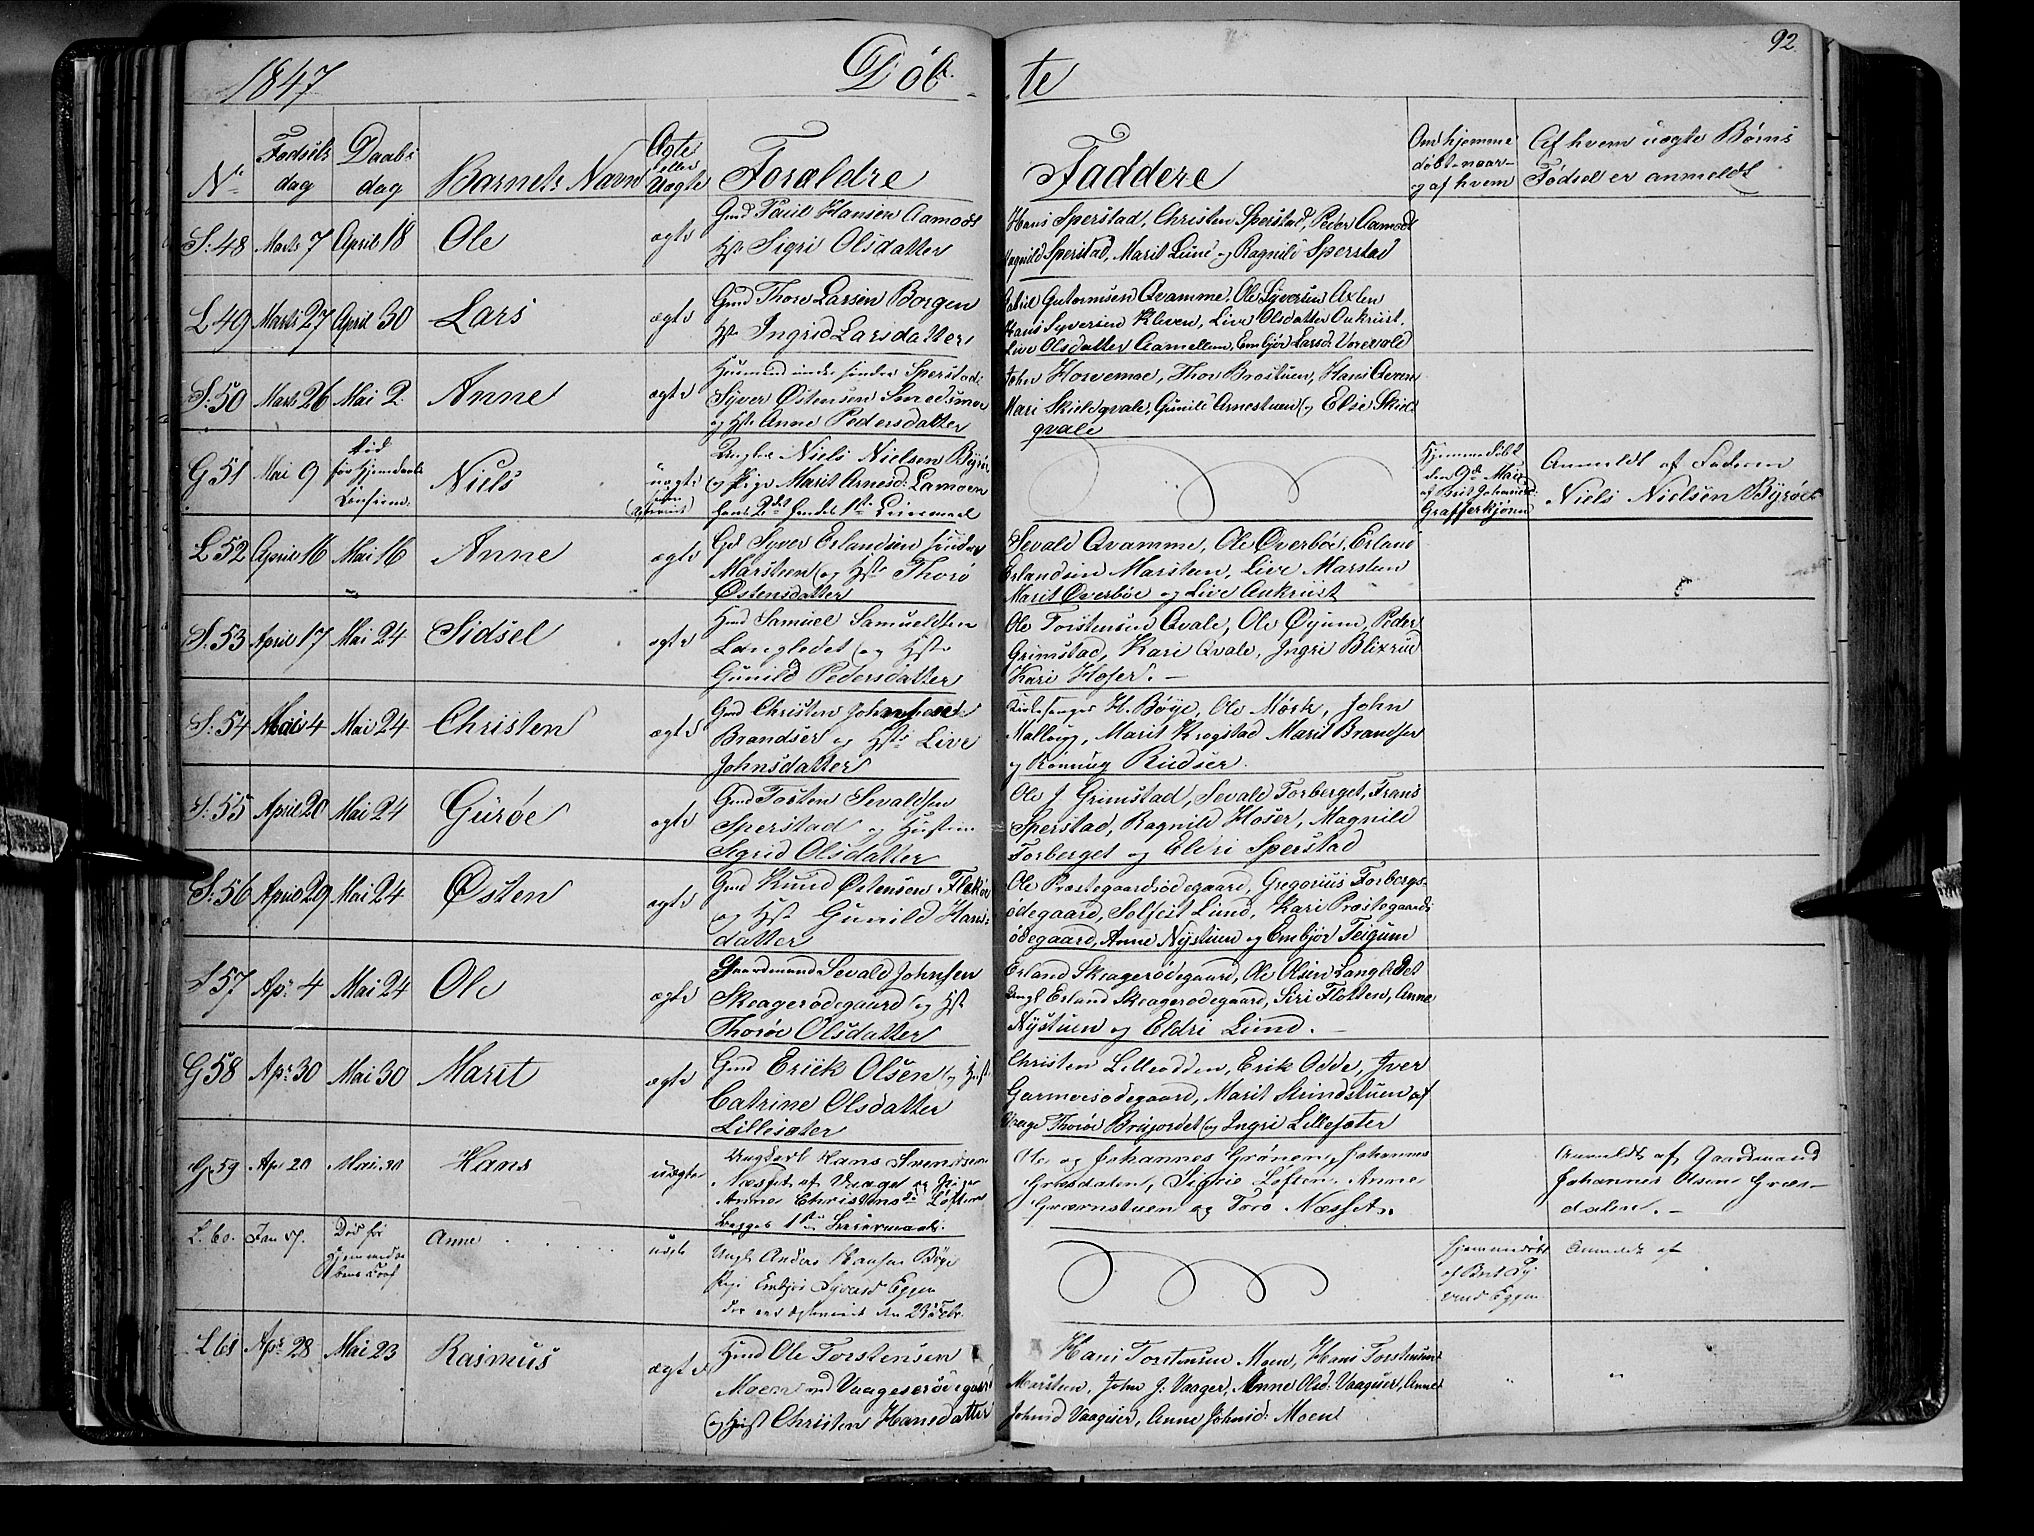 1847 Døb- te 92.
No Fødsels dag Daabs dag Barnets Navn Ægte eller Uægte Forældre Faddere Om hjemme døbt naar og af hvem Af hvem uægte Børns Fødsel er anmeldt
S. 48 Marts 7 April 18 Ole ægte Gmd Paul Hansen Aamodt
Hst Sigri Olsdatter
Hans Sperstad, Christen Sperstad, Peder Aamodt
Magnild Sperstad, Marit Lund og Ragnild Sperstad
L 49 Marts 27 April 30 Lars ægte Gmd Thore Larsen Borgen
Hst Ingrid Larsdatter
Gutormsen Qvamme, Ole Syversen Axlen
Hans Syversen Kleven, Live Olsdatter Aukrust,
Live Olsdatter Aamellem, Embjør Larsd. Vorevald
S. 50 Marts 26 Mai 2 Anne ægte Husmand under søndre Sperstad
Syver Østensen Smedsmoe
og Hst Anne Pedersdatter
John Hovemoe, Thor Brostuen, Hans
Mari Skieldqvale, Gunild Arnestuen og Else Skield
qvale
G 51 Mai 9 død før Hjemdaab Confirm. Niels uægte
Ungkarl Niels Nielsen Byrøe
og Pige Marit Arnesd. Lamoen
hans 2det hendes 1ste Leiermaal
Hjemmedøbt
den 9de Mai
af Brit Johansd.
Grafferkjønn
Anmeldt af Faderen
Niels Nielsen Byrøe
L 52 April 16 Mai 16 Anne ægte Gd Syver Erlandsen søndre
Marsteen og Hst Thorø
Østensdatter
Sevald Qvamme, Ole Øverbøe, Erland
Erlandsen Marsteen, Live Marsteen
Marit Øverbøe og Live Aukrust
S. 53 April 17 Mai 24 Sidsel ægte Hmd Samuel Samuelsen
Langledet og Hst
Gunild Pedersdatter
Ole Torstensen Qvale, Ole Øyum, Peder
Grimstad, Kari Qvale, Ingri Blixrud
Kari Hoser. -
S. 54 Mai 4 Mai 24 Christen ægte Gmd Christen Johnsen
Brandser og Hst Live
Johnsdatter
Kirkesanger H. Bøye, Ole Mørk, John
Malbygg, Marit Krogstad Marit Brandser
og Rønnug Rudser.
S. 55 April 20 Mai 24 Gurøe ægte Gmd Tosten Sevaldsen
Sperstad og Hustru
Sigrid Olsdatter
Ole J. Grimstad, Sevald Forberget, Frans
Sperstad, Ragnild Hoser, Magnild
Forberget og Eldri Sperstad
S. 56 April 29 Mai 24 Østen ægte Gmd Knud Østensen Flækøe
og Hst Gunild Hans-
datter
Ole Præstegaardsødegaard, Gregorius Forbergs-
ødegaard, Solfeit Lund, Kari Præstegaards
ødegaard, Anne Nystuen og Embjør Teigum
S 57 Apr. 4 Mai 24 Ole ægte Gaardmand Sevald Johnsen
Skeagerødegaard og Hst
Thorøe Olsdatter
Erland Skeagerødegaard, Ole Olsen Langledet
Ungk Erland Skeagerødegaard, Siri Flotten, Anne
Nystuen og Eldri Lund. -
G 58 Apr. 30 Mai 30 Marit ægte Gmd Erick Olsen og Hust
Catrine Olsdatter
Lillesæter
Christen Lilleodden, Erik Odde, Iver
Garmoesødegaard, Marit Strindstuen af
Vaage Thorøe Brujordet og Ingri Lillesæter
G. 59 Apr 20 Mai. 30 Hans uægte Ungkarl Hans Svendsen
Næsset af Vaage og Pige
Anne Christensdr Løften
begges 1ste Leiermaal.
Ole og Johannes Grønen, Johannes
Græsdalen, Sigrie Løften, Anne
og Toro Næsset.
Anmeldt af Gaardmand
Johannes Olsen Græs-
dalen. -
L. 60. Jan 17. Død før Hjemmedaabens Anne uægte Ungk Anders Hansen Bøye
Pige Embjør Syversd Eggen
hjemmedøbt
af Brit Sy-
versd Eggen
Anmeldt af
L 61 Apr. 28 Mai 23 Rasmus ægte Hmd Ole Torstensen
Moen ved Vaageserødegaard
og Hust Christen Hansdatter
Hans Torstensen Moen, Hans Torstensen
Marsteen, John J. Vaager, Anne Olsd. Vaaguser, Anne
Johnsd Vaaguser, Anne Johnsd: Moen